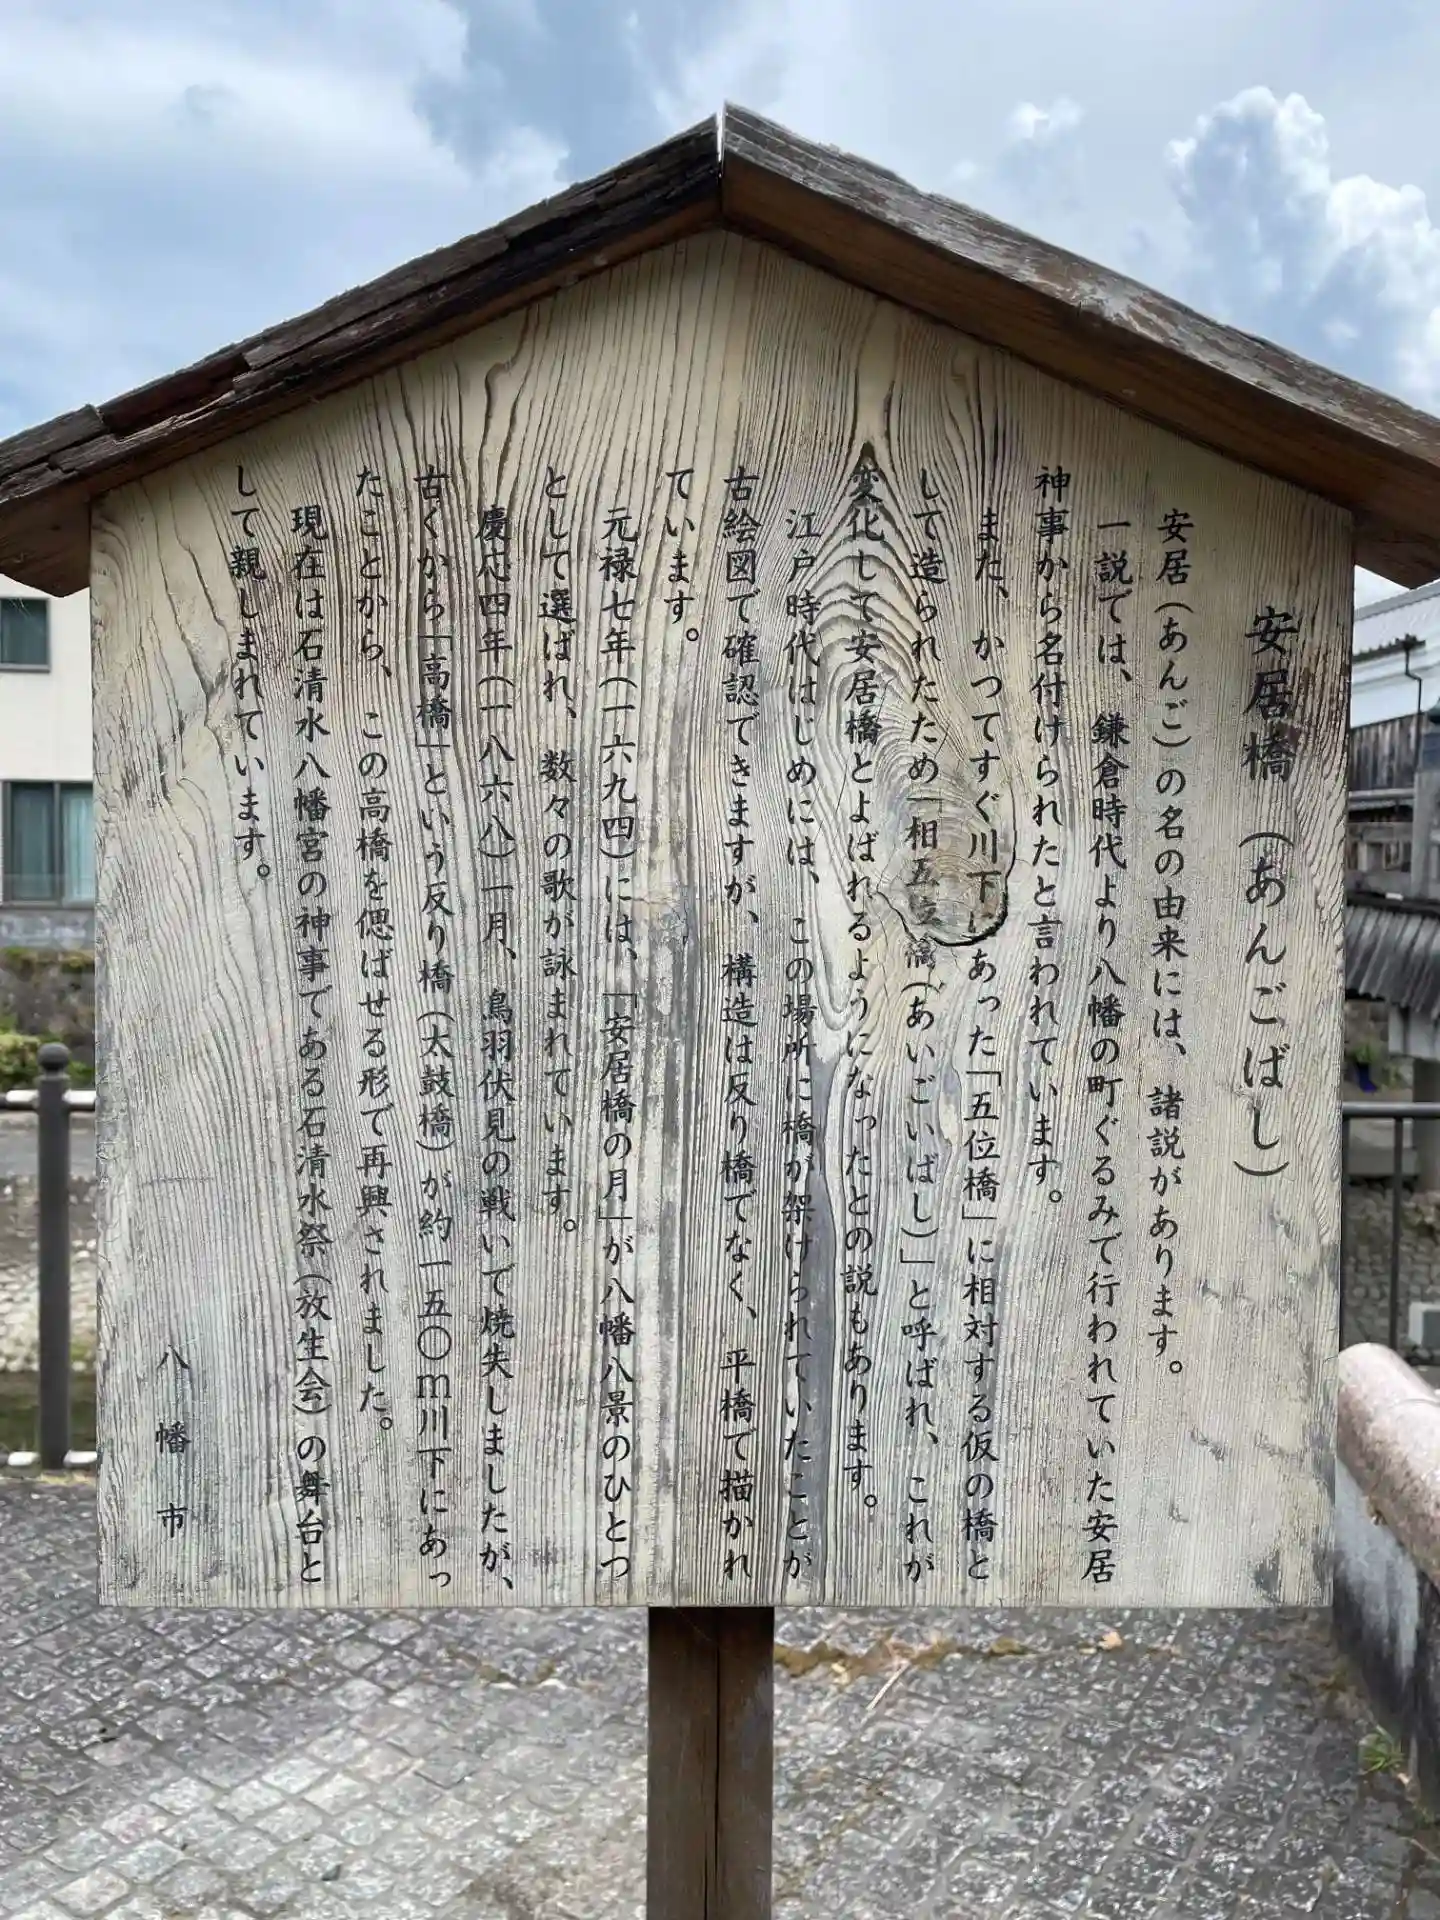 安居橋（あんごばし）
安居（あんご）の名の由来には、諸説があります。
一説では、鎌倉時代より八幡の町ぐるみで行われていた安居
神事から名付けられたと言われています。
また、かつてすぐ川下にあった「五位橋」に相対する仮の橋と
して造られたため「相五位橋（あいごいばし）」と呼ばれ、これが
変化して安居橋とよばれるようになったとの説もあります。
江戸時代はじめには、この場所に橋が架けられていたことが
古絵図で確認できますが、構造は反り橋でなく、平橋で描かれ
ています。
元禄七年（一六九四）には、「安居橋の月」が八幡八景のひとつ
として選ばれ、数々の歌が詠まれています。
慶応四年（一八六八）一月、鳥羽伏見の戦いで焼失しましたが、
古くから「高橋」という反り橋（太鼓橋）が約一五〇m川下にあっ
たことから、この高橋を偲ばせる形で再興されました。
現在は石清水八幡宮の神事である石清水祭（放生会）の舞台と
して親しまれています。
八幡市